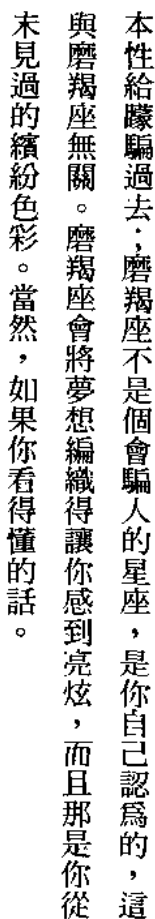 本性給矇騙過去；磨羯座不是個會騙人的星座，是你自己認為的，這
與磨羯座無關。磨羯座會將夢想編織得讓你感到亮炫，而且那是你從
未見過的繽紛色彩。當然，如果你看得懂的話。